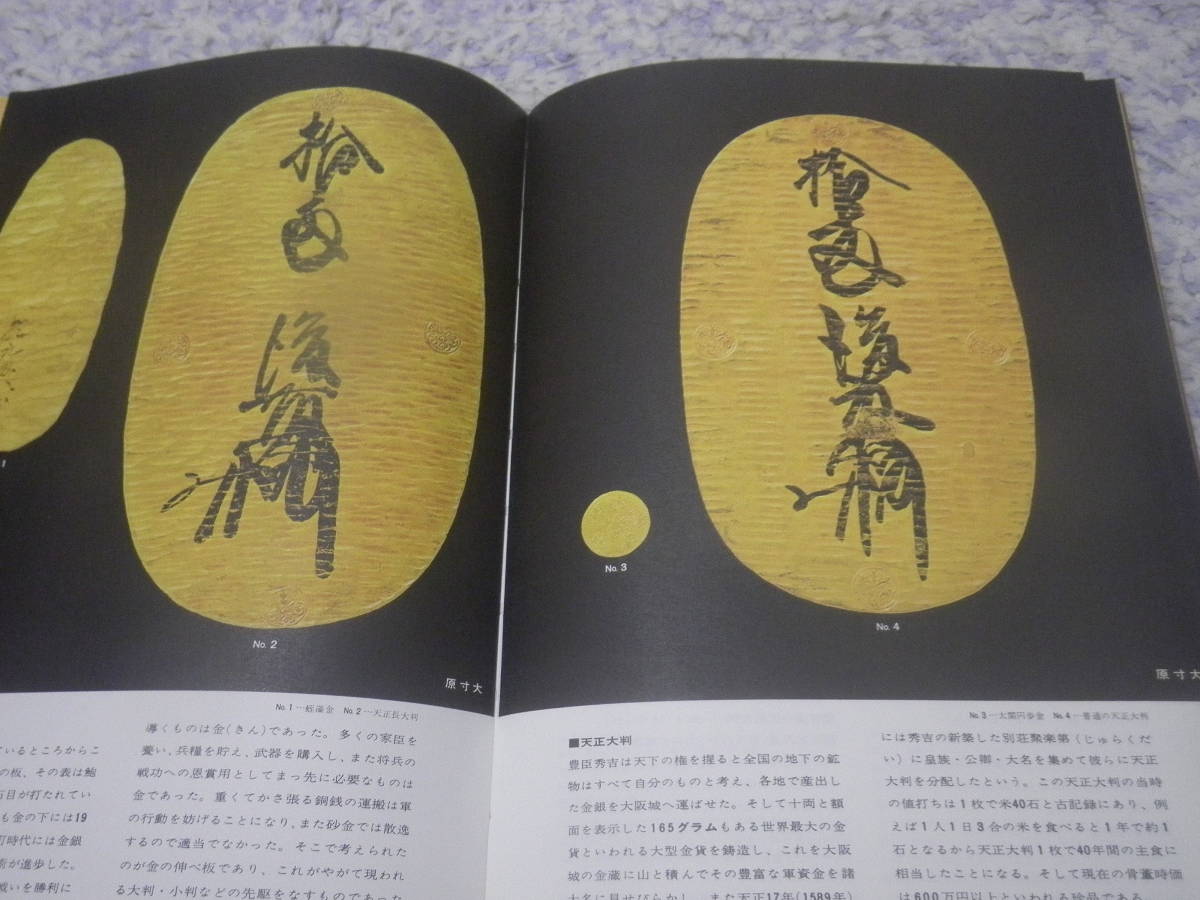 拾両
後藤
1
No. 2
原寸大
No. 1…蛭藻金 No. 2…天正長大判
ているところからこ
の板、その表は鮑
石目が打たれてい
も金の下には19
町時代には金銀
術が進歩した。
戦いを勝利に
導くものは金(きん)であった。多くの家臣を
養い、兵糧を貯え、武器を購入し、また将兵の
戦功への恩賞用としてまっ先に必要なものは
金であった。重くてかさ張る銅銭の運搬は軍
の行動を妨げることになり、また砂金では散逸
するので適当でなかった。そこで考えられた
のが金の伸べ板であり、これがやがて現われ
る大判・小判などの先駆をなすものであった
拾両
後藤
No. 3
No. 4
原寸大
No. 3…太閤円歩金 No. 4…普通の天正大判
■天正大判
豊臣秀吉は天下の権を握ると全国の地下の鉱
物はすべて自分のものと考え、各地で産出し
た金銀を大阪城へ運ばせた。そして十両と額
面を表示した165グラムもある世界最大の金
貨といわれる大型金貨を鋳造し、これを大阪
城の金蔵に山と積んでその豊富な軍資金を諸
大名に見せびらかし、また天正17年(1589年)
には秀吉の新築した別荘聚楽第(じゅらくだ
い)に皇族・公卿・大名を集めて彼らに天正
大判を分配したという。この天正大判の当時
の値打ちは1枚で米40石と古記録にあり、例
えば1人1日3合の米を食べると1年で約1
石となるから天正大判1枚で40年間の主食に
相当したことになる。そして現在の骨董時価
は600万円以上といわれる珍品である